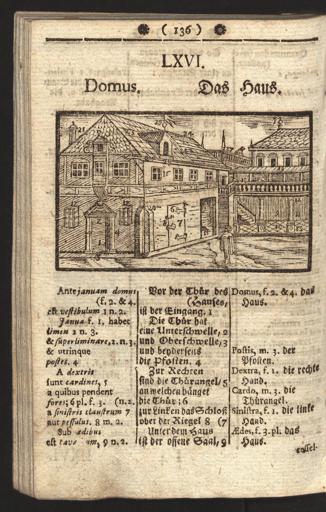 ( 136 )
LXVI.
Domus. Das Haus.
Ante januam domus
(f. 2. & 4.
est vestibulum 1 n. 2.
Janua f. 1. habet
limen 2 n. 3.
& superliminare, 3. n. 3.
& utrinque
postes. 4
A dextris
sunt cardines, 5
a quibus pendent
fores; 6 pl. f. 3. (n. 2.
a sinistris claustrum 7
aut pessulus. 8 m. 2.
Sub ædibus
est 9 n. 2.
Vor der Thür des
Hauses,
ist der Eingang. 1
Die Thür hat
eine Unterschwelle, 2
und Oberschwelle, 3
und beyderseits
die Pfosten. 4
Zur Rechten
sind die Thürangel, 5
an welchen hänget
die Thür; 6
zur Linken das Schloß
oder der Riegel 8 (7
Unter dem Haus
ist der offene Saal, 9
Domus, f. 2. & 4. das
Haus.
Postis, m. 3. der
Pfosten.
Dextra, f. 1. die rechte
Hand.
Cardo, m. 3. die
Thürangel.
Sinistra, f. 1. die linke
Hand.
Ædes, f. 3. pl. das
Haus.